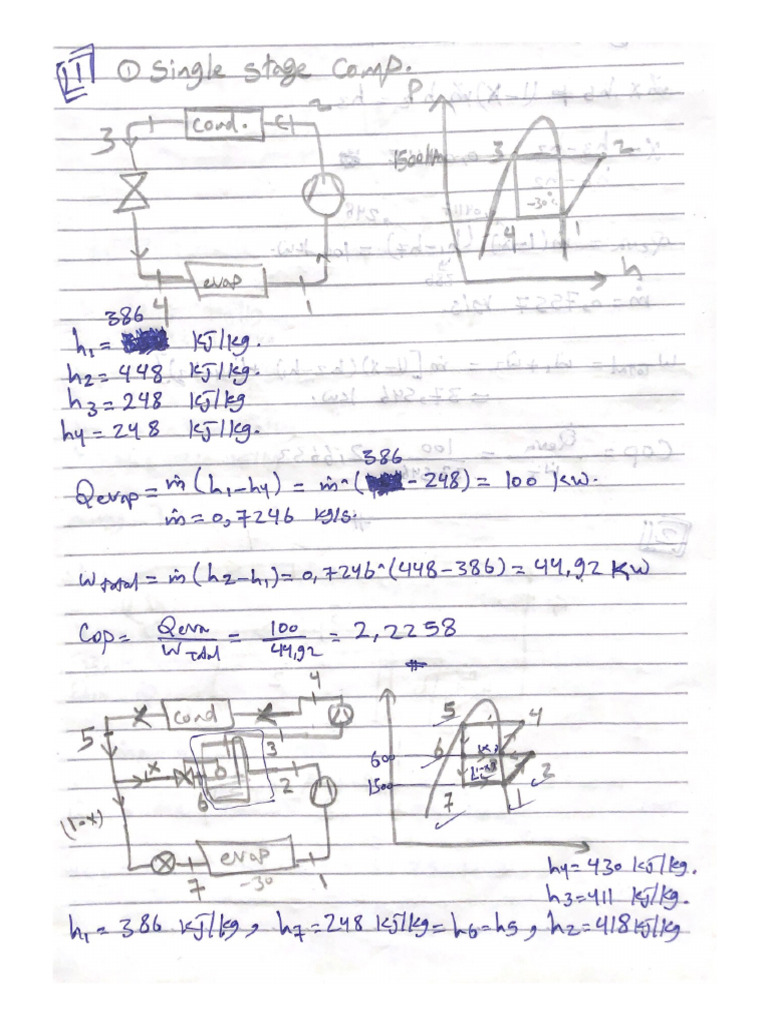 [1] ① Single stage Comp.
P
2
3
cond.
1500 kPa
3
2
-30°
4
1
evap
4
1
h
386
h1 = kJ/kg.
h2 = 448 kJ/kg.
h3 = 248 kJ/kg
h4 = 248 kJ/kg.
386
Qevap = ṁ (h1-h4) = ṁ*( - 248) = 100 kW.
ṁ = 0,7246 kg/s.
Wtotal = ṁ (h2-h1) = 0,7246*(448-386) = 44,92 KW
Cop = Qeva/WTotal = 100/44,92 = 2,2258
#
4
Cond
5
3
x
6
2
(1-x)
evap
7
-30
1
5
4
600
6
1500
7
2
1
h4 = 430 kJ/kg.
h3 = 411 kJ/kg.
h1 = 386 kJ/kg, h7 = 248 kJ/kg = h6 = h5, h2 = 418 kJ/kg